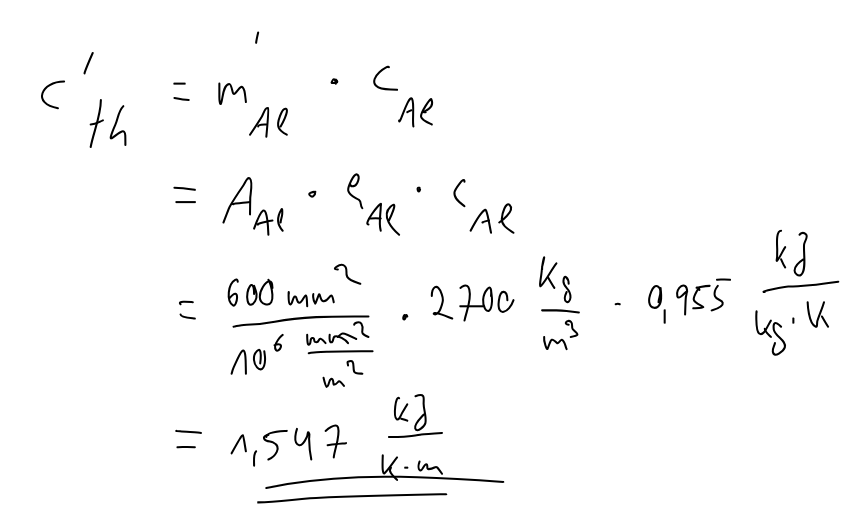 c'_th = m'_Al · c_Al
= A_Al · ϱ_Al · c_Al
= 600 mm² / 10⁶ mm²/m² · 2700 kg/m³ · 0,955 kJ/kg·K
= 1,547 kJ/K·m